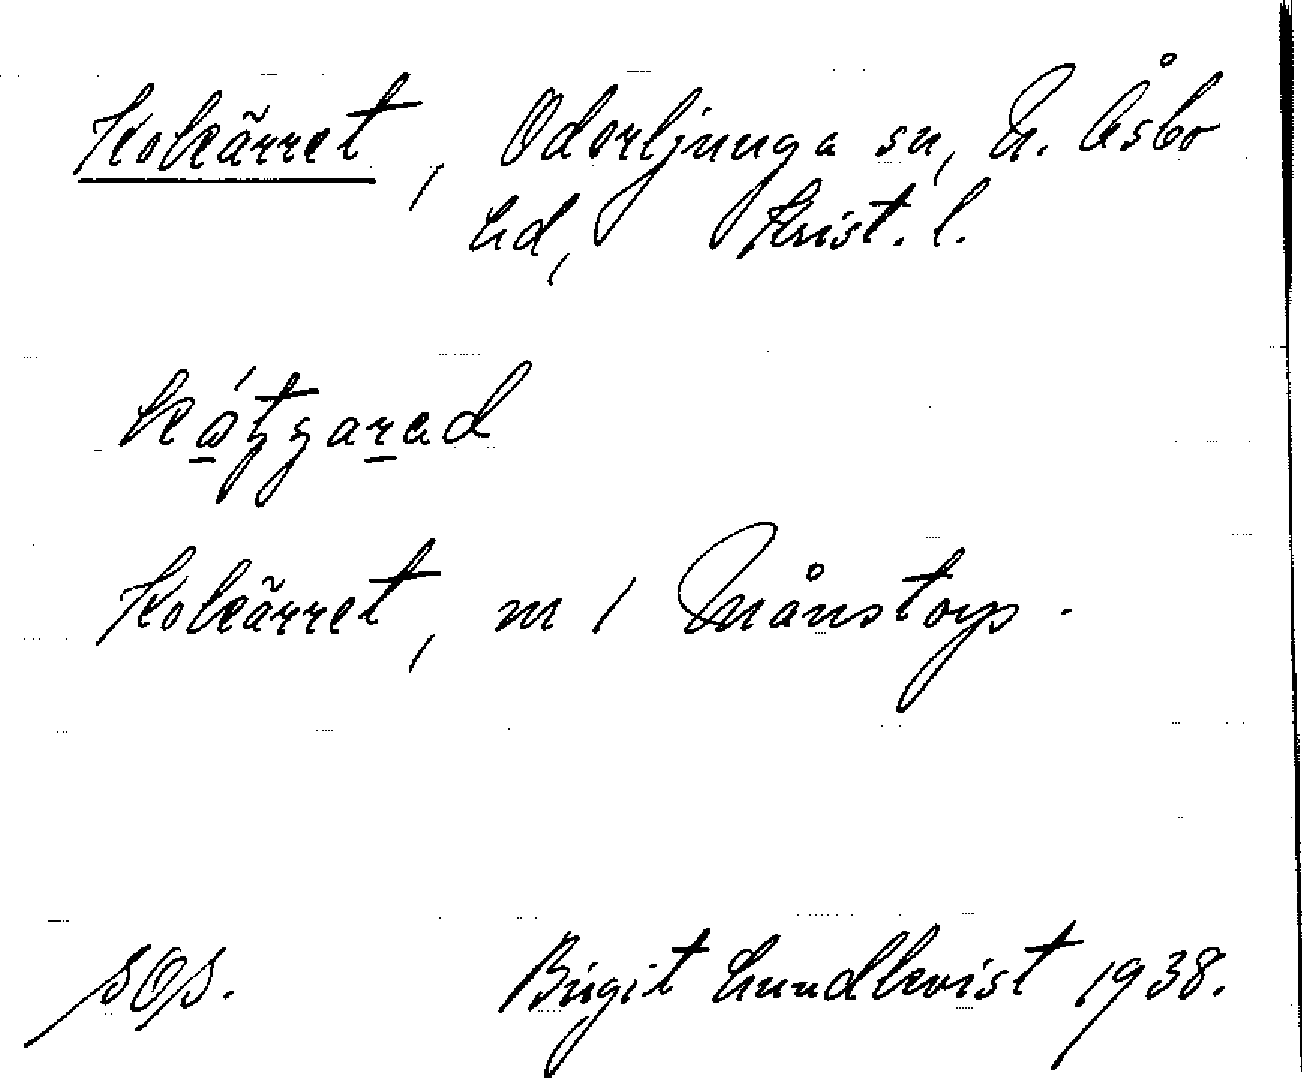 Kokärret, Oderljunga sn, N. Åsbo
hd, Krist. l.
Kokärret, m / Månstorp.
SOS.
Birgit Lundkvist 1938.